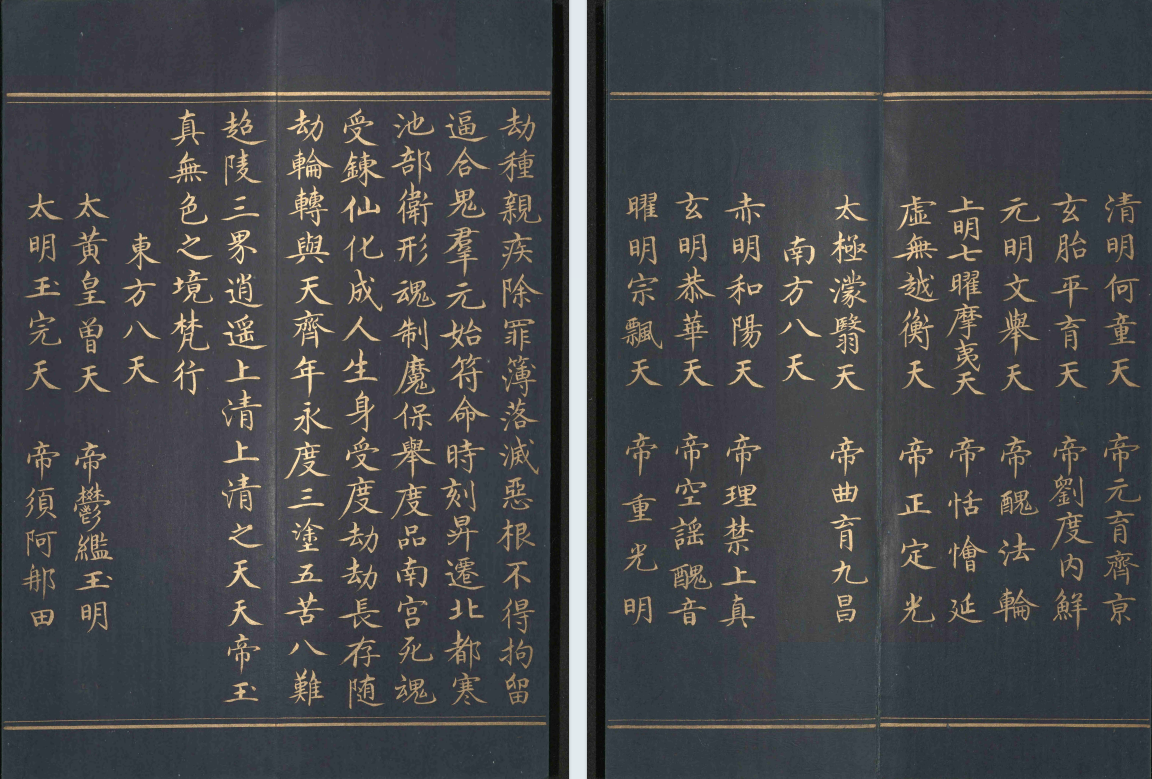 劫種親疾除罪簿落滅惡根不得拘留
逼合鬼羣元始符命時刻昇遷北都寒
池部衛形魂制魔保舉度品南宮死魂
受鍊仙化成人生身受度劫劫長存随
劫輪轉與天齊年永度三塗五苦八難
超陵三界逍遥上清上清之天天帝玉
真無色之境梵行
東方八天
太黃皇曾天 帝鬱繿玉明
太明玉完天 帝須阿那田
清明何童天 帝元育齊京
玄胎平育天 帝劉度內鮮
元明文舉天 帝醜法輪
上明七曜摩夷天 帝恬懀延
虛無越衡天 帝正定光
太極濛翳天 帝曲育九昌
南方八天
赤明和陽天 帝理禁上真
玄明恭華天 帝空謡醜音
曜明宗飄天 帝重光明